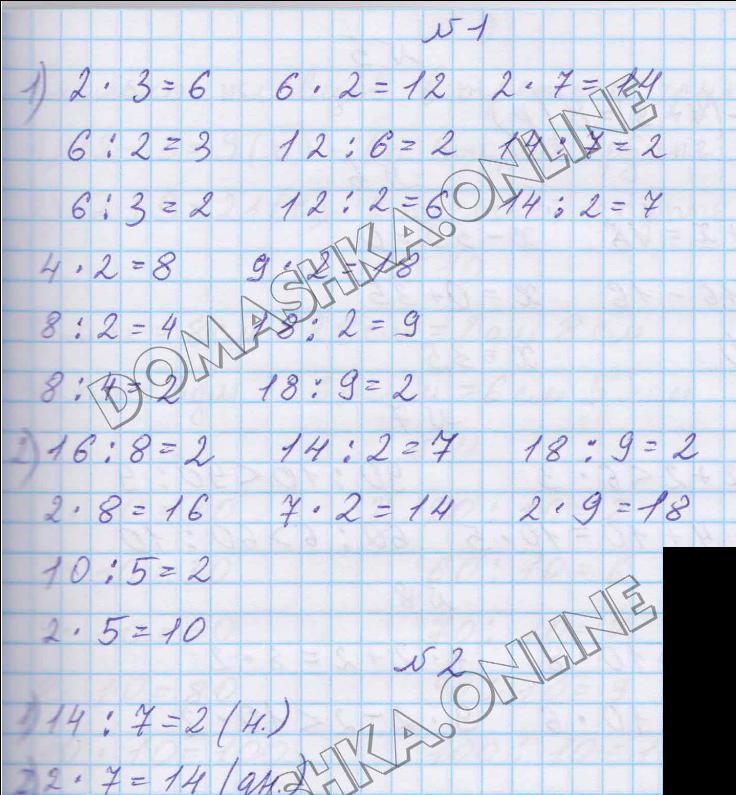 №1
1) 2 · 3 = 6   6 · 2 = 12   2 · 7 = 14
6 : 2 = 3   12 : 6 = 2   14 : 7 = 2
6 : 3 = 2   12 : 2 = 6   14 : 2 = 7
4 · 2 = 8   9 · 2 = 18
8 : 2 = 4   18 : 2 = 9
8 : 4 = 2   18 : 9 = 2
2) 16 : 8 = 2   14 : 2 = 7   18 : 9 = 2
2 · 8 = 16   7 · 2 = 14   2 · 9 = 18
10 : 5 = 2
2 · 5 = 10
№2
1) 14 : 7 = 2 (н.)
2) 2 · 7 = 14 (дн.)
DOMASHKA.ONLINE
HKA.ONLINE